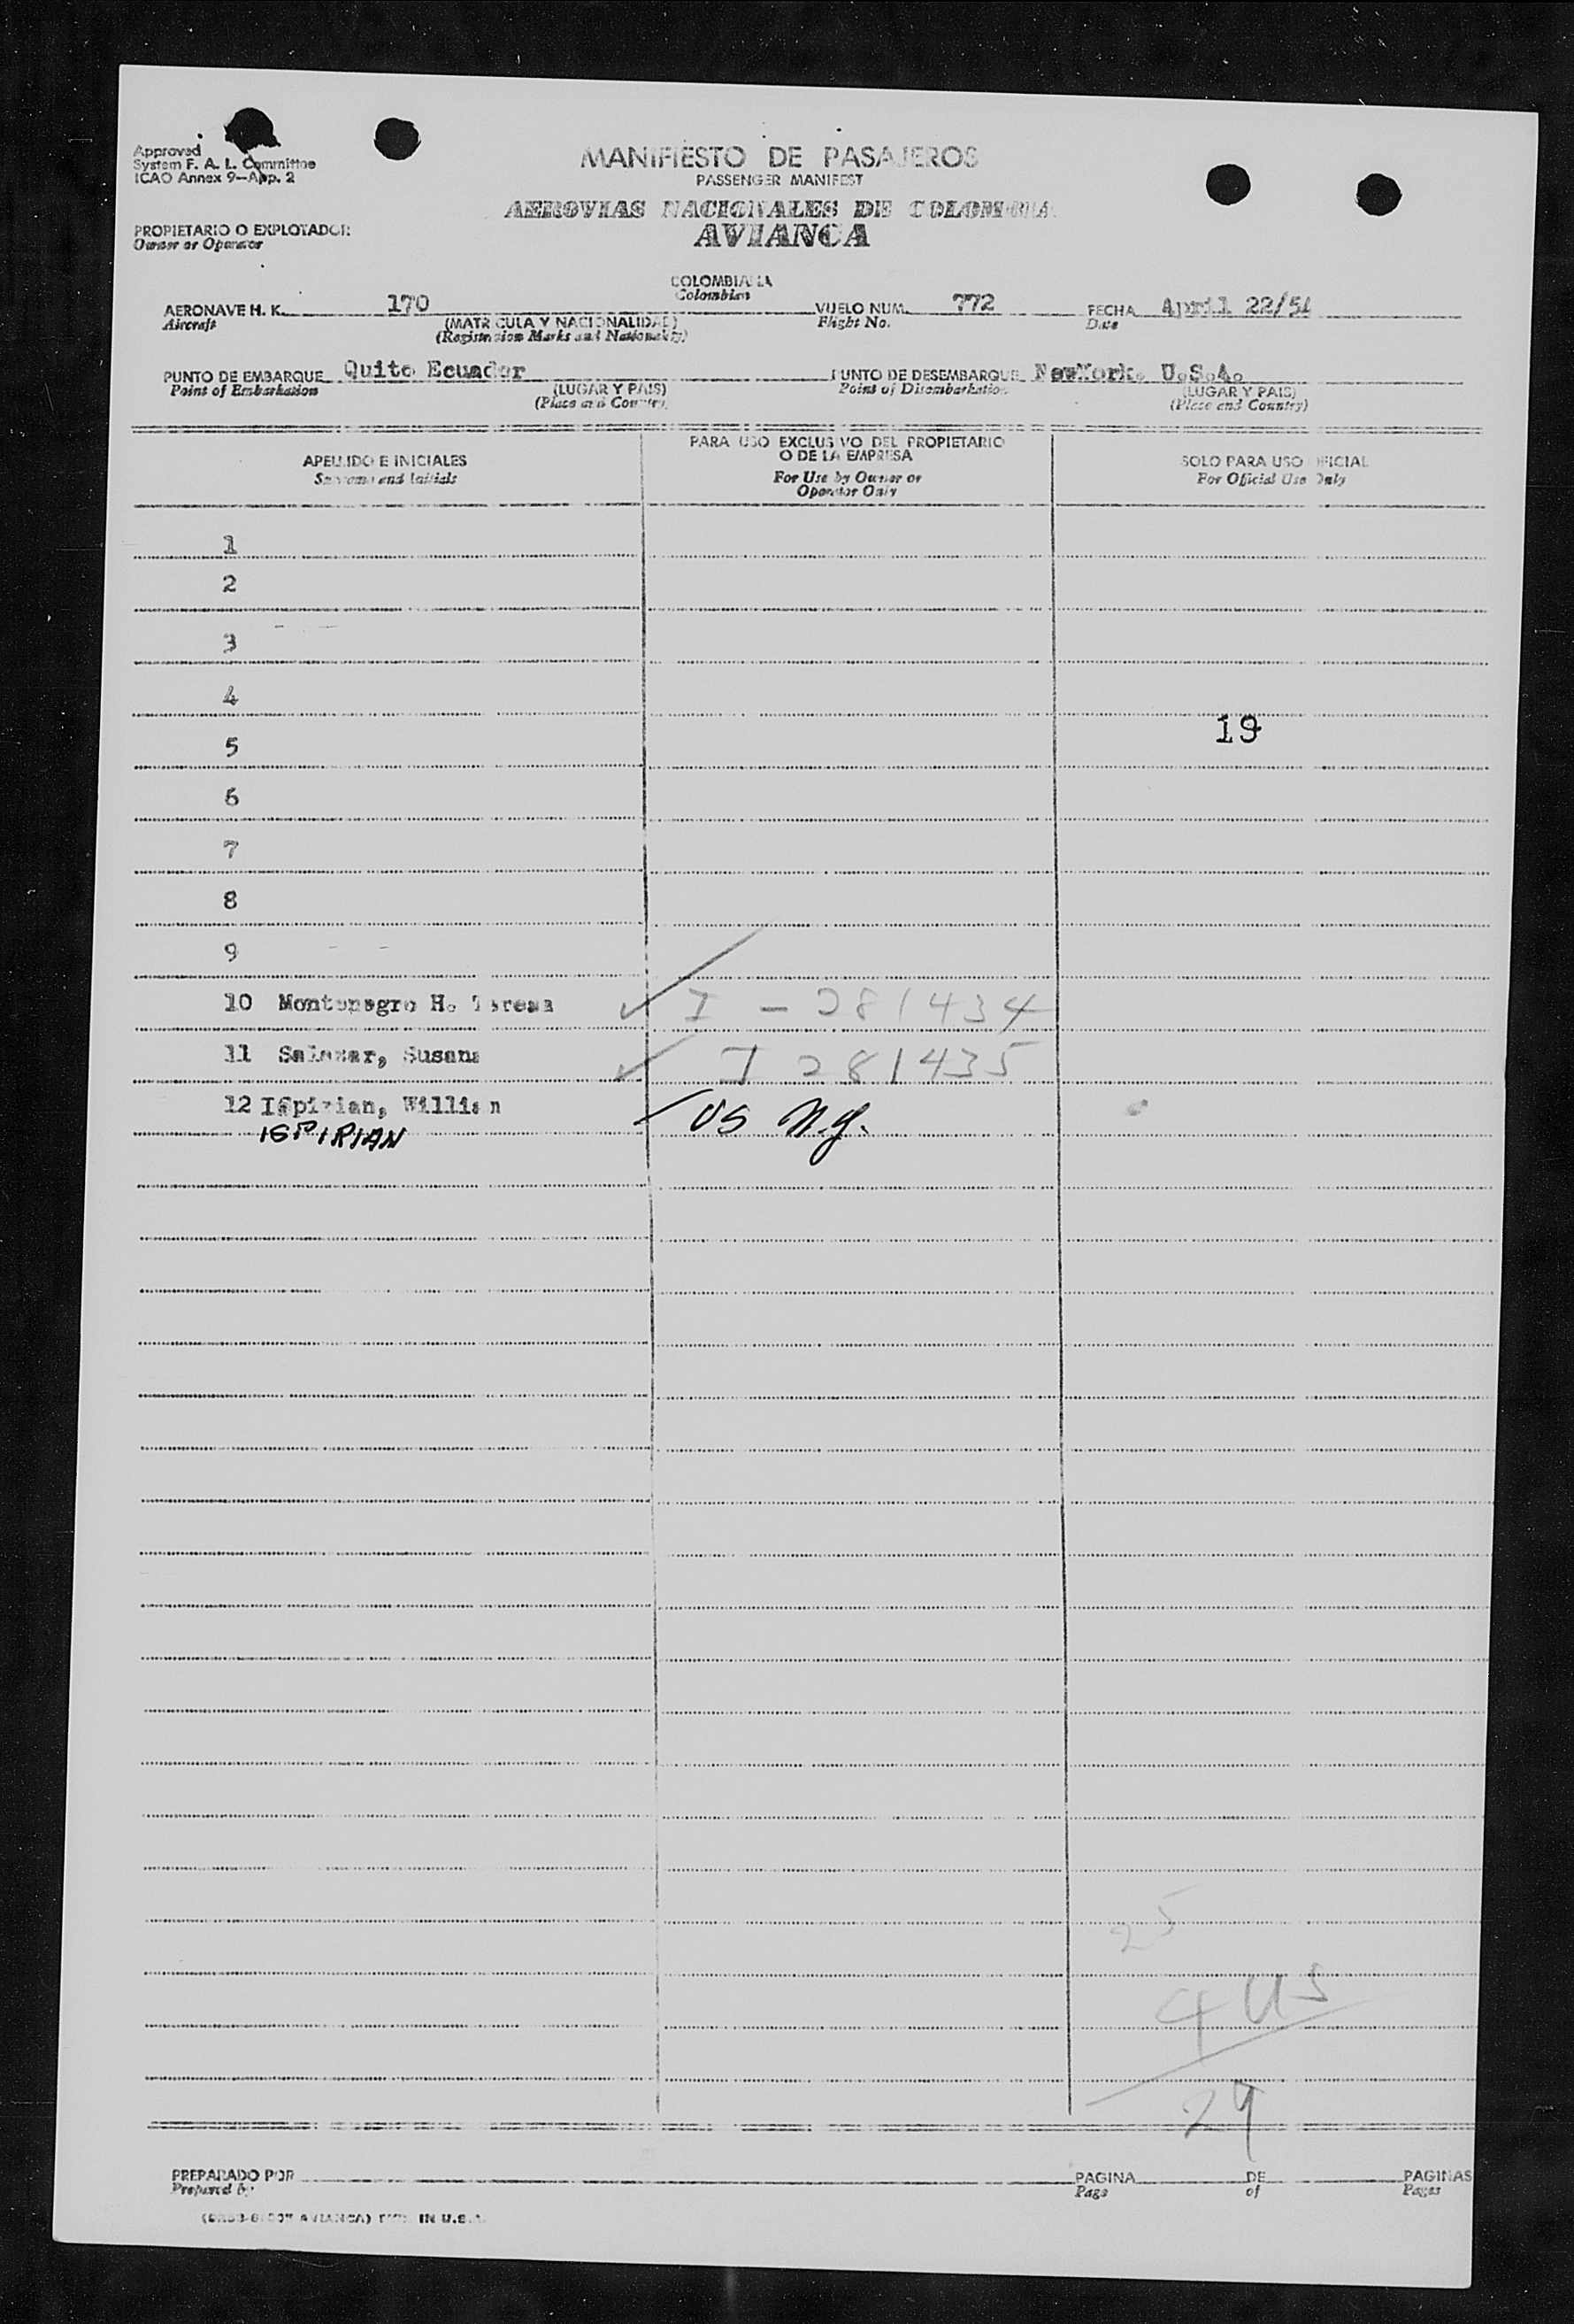 Approved
System F. A. L. Committee
ICAO Annex 9—App. 2
MANIFIESTO DE PASAJEROS
PASSENGER MANIFEST
AEROVIAS NACIONALES DE COLOMBIA
AVIANCA
PROPIETARIO O EXPLOTADOR:
Owner or Operator
COLOMBIANA
Colombian
AERONAVE H. K. 170 VUELO NUM. 772 FECHA April 22/54
Aircraft (MATRICULA Y NACIONALIDAD) Flight No. Date
(Registration Marks and Nationality)
PUNTO DE EMBARQUE Quito Ecuador PUNTO DE DESEMBARQUE NewYork, U.S.A.
Point of Embarkation (LUGAR Y PAIS) Point of Disembarkation (LUGAR Y PAIS)
(Place and Country) (Place and Country)
APELLIDO E INICIALES PARA USO EXCLUSIVO DEL PROPIETARIO SOLO PARA USO OFICIAL
Surname and Initials O DE LA EMPRESA For Official Use Only
For Use by Owner or
Operator Only
1
2
3
4
19
5
6
7
8
9
10 Montenegro H. Teresa I - 281434
11 Salazar, Susana I 281435
12 Ispirian, William US N.Y.
ISPIRIAN
25
4 US
29
PREPARADO POR PAGINA DE PAGINAS
Prepared by Page of Pages
AVIANCA) IN U.S.A.